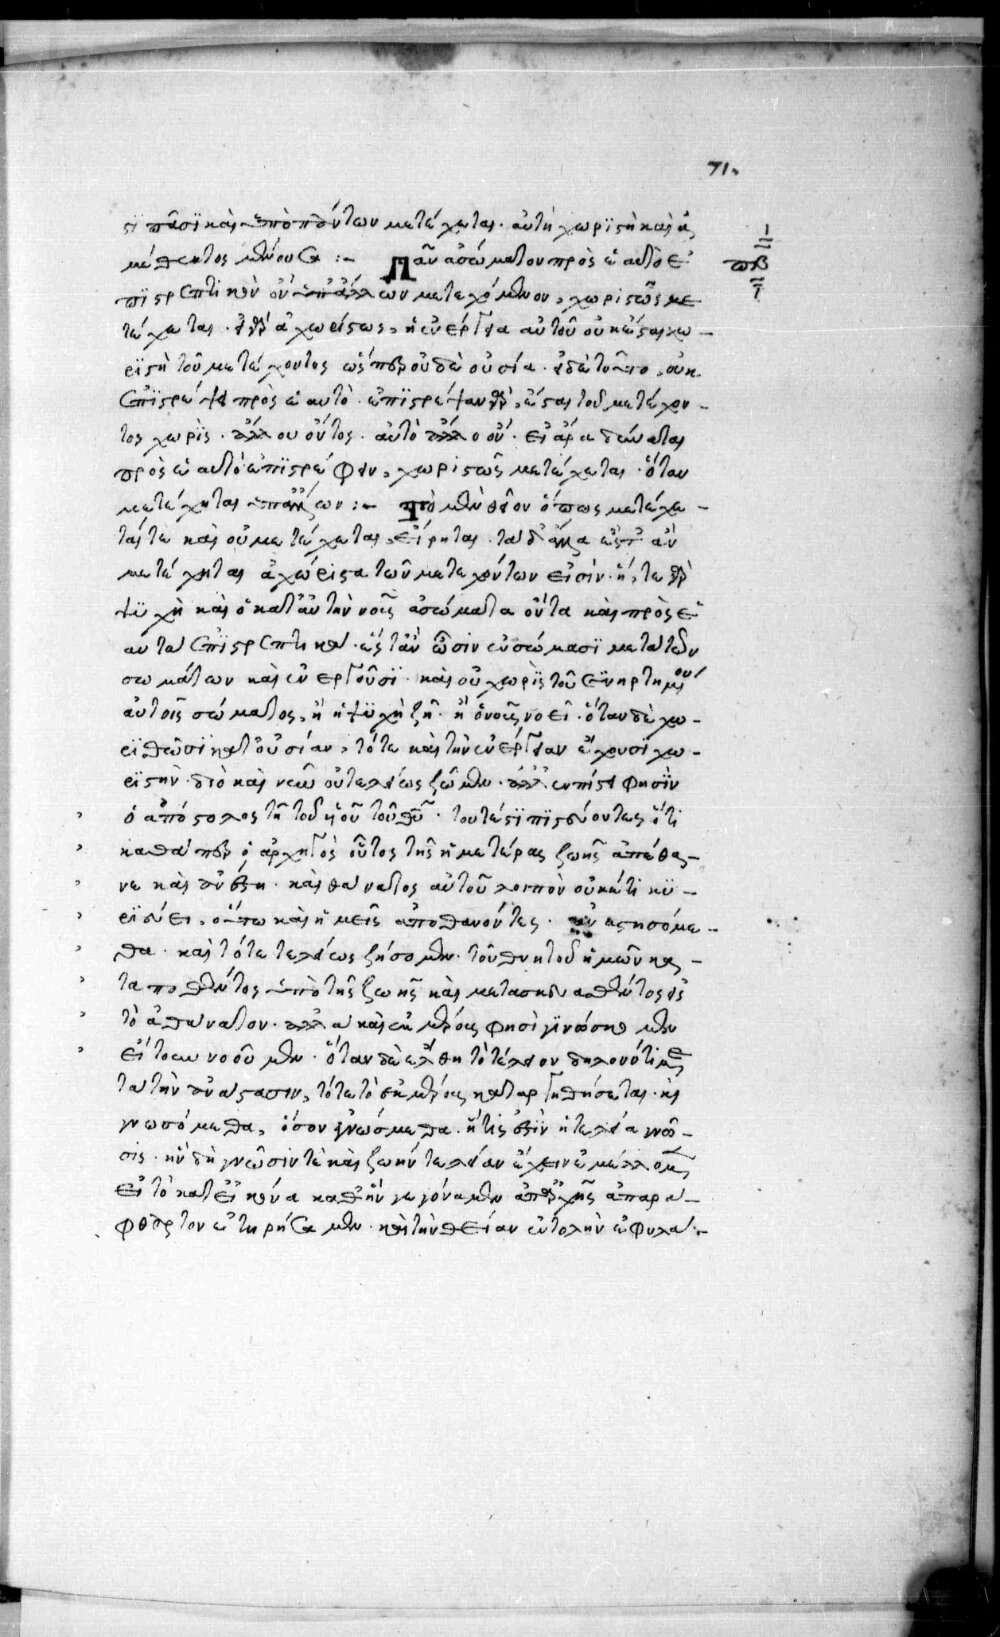 71.
στι πᾶσι καὶ ὑπὸ πάντων μετέχεται. αὐτὴ χωριστὴ καὶ ἀ
μέθεκτος μένουσα :– Πᾶν ἀσώματον πρὸς ἑαυτὸ ἐ
πβ
πιστρεπτικὸν ὂν ὑπ' ἄλλων μετεχόμενον, χωριστῶς με
τέχεται. εἰ γὰρ ἀχωρίστως, ἡ ἐνέργεια αὐτοῦ οὐκ ἔσται χω –
ριστὴ τοῦ μετέχοντος ὥσπερ οὐδὲ οὐσία. εἰ δὲ τοῦτο, οὐκ
ἐπιστρέψει πρὸς ἑαυτό. ἐπιστρέψαν γὰρ, ἔσται τοῦ μετέχον –
τος χωρὶς. ἄλλου ὄντος. αὐτὸ ἄλλο ὄν. εἰ ἄρα δύναται
πρὸς ἑαυτὸ ἐπιστρέφειν, χωριστῶς μετέχεται. ὅταν
μετέχηται ὑπ' ἄλλων :– Τὸ μὲν θεῖον ὅπως μετέχε –
ταί τε καὶ οὐ μετέχεται, εἴρηται. τὰ δ' ἄλλα ὑφ' ὧν ἂν
μετέχηται ἀχώριστα τῶν μετεχόντων εἰσίν. ἥ, τε γὰρ
ψυχὴ καὶ ὁ κατ' αὐτὴν νοῦς ἀσώματα ὄντα καὶ πρὸς ἑ
αυτὰ ἐπιστρεπτικὰ. ἔστ' ἂν ὦσιν ἐν σώμασι μετὰ τῶν
σωμάτων καὶ ἐνεργοῦσι. καὶ οὐ χωρὶς τοῦ συνηρτημένου
αὐτοῖς σώματος, ἢ ἡ ψυχὴ ζῇ. ἢ ὁ νοῦς νοεῖ. ὅταν δὲ χω –
ρισθῶσι κατ' οὐσίαν, τότε καὶ τὴν ἐνέργειαν ἔχουσι χω –
ριστὴν. διὸ καὶ νῦν οὐ τελείως ζῶμεν. ἀλλ' ἐν πίστει φησὶν
ὁ ἀπόστολος τῇ τοῦ υἱοῦ τοῦ θεοῦ. τουτέστι πιστεύοντες ὅτι
καθάπερ ὁ ἀρχηγὸς οὗτος τῆς ἡμετέρας ζωῆς ἀπέθα –
νε καὶ ἀνέστη. καὶ θάνατος αὐτοῦ λοιπὸν οὐκέτι κυ –
ριεύει. οὕτω καὶ ἡμεῖς ἀποθανόντες. ἀναστησόμε –
θα. καὶ τότε τελείως ζήσομεν. τοῦ θνητοῦ ἡμῶν κα –
ταποθέντος ὑπὸ τῆς ζωῆς καὶ μετασκευασθέντος εἰς
τὸ ἀθάνατον. ἀλλὰ καὶ ἐκ μέρους φησὶ γινώσκομεν
εἴτουν νοοῦμεν. ὅταν δὲ ἔλθῃ τὸ τέλειον δηλονότι με
τὰ τὴν ἀνάστασιν, τότε τὸ ἐκ μέρους καταργηθήσεται. καὶ
γνωσόμεθα, ὅσον γνωσόμεθα. ἥτις ἐστὶν ἡ τελεία γνῶ –
σις. ἣν δὴ γνῶσίν τε καὶ ζωὴν τελείαν ἔχειν ἐμέλλομεν
εἰ τὸ κατ' εἰκόνα καθ' ἣν γεγόναμεν ἀπ' ἀρχῆς ἀπαρά –
φθορτον ἐτηρήσαμεν. καὶ τὴν θείαν ἐντολὴν ἐφυλά –